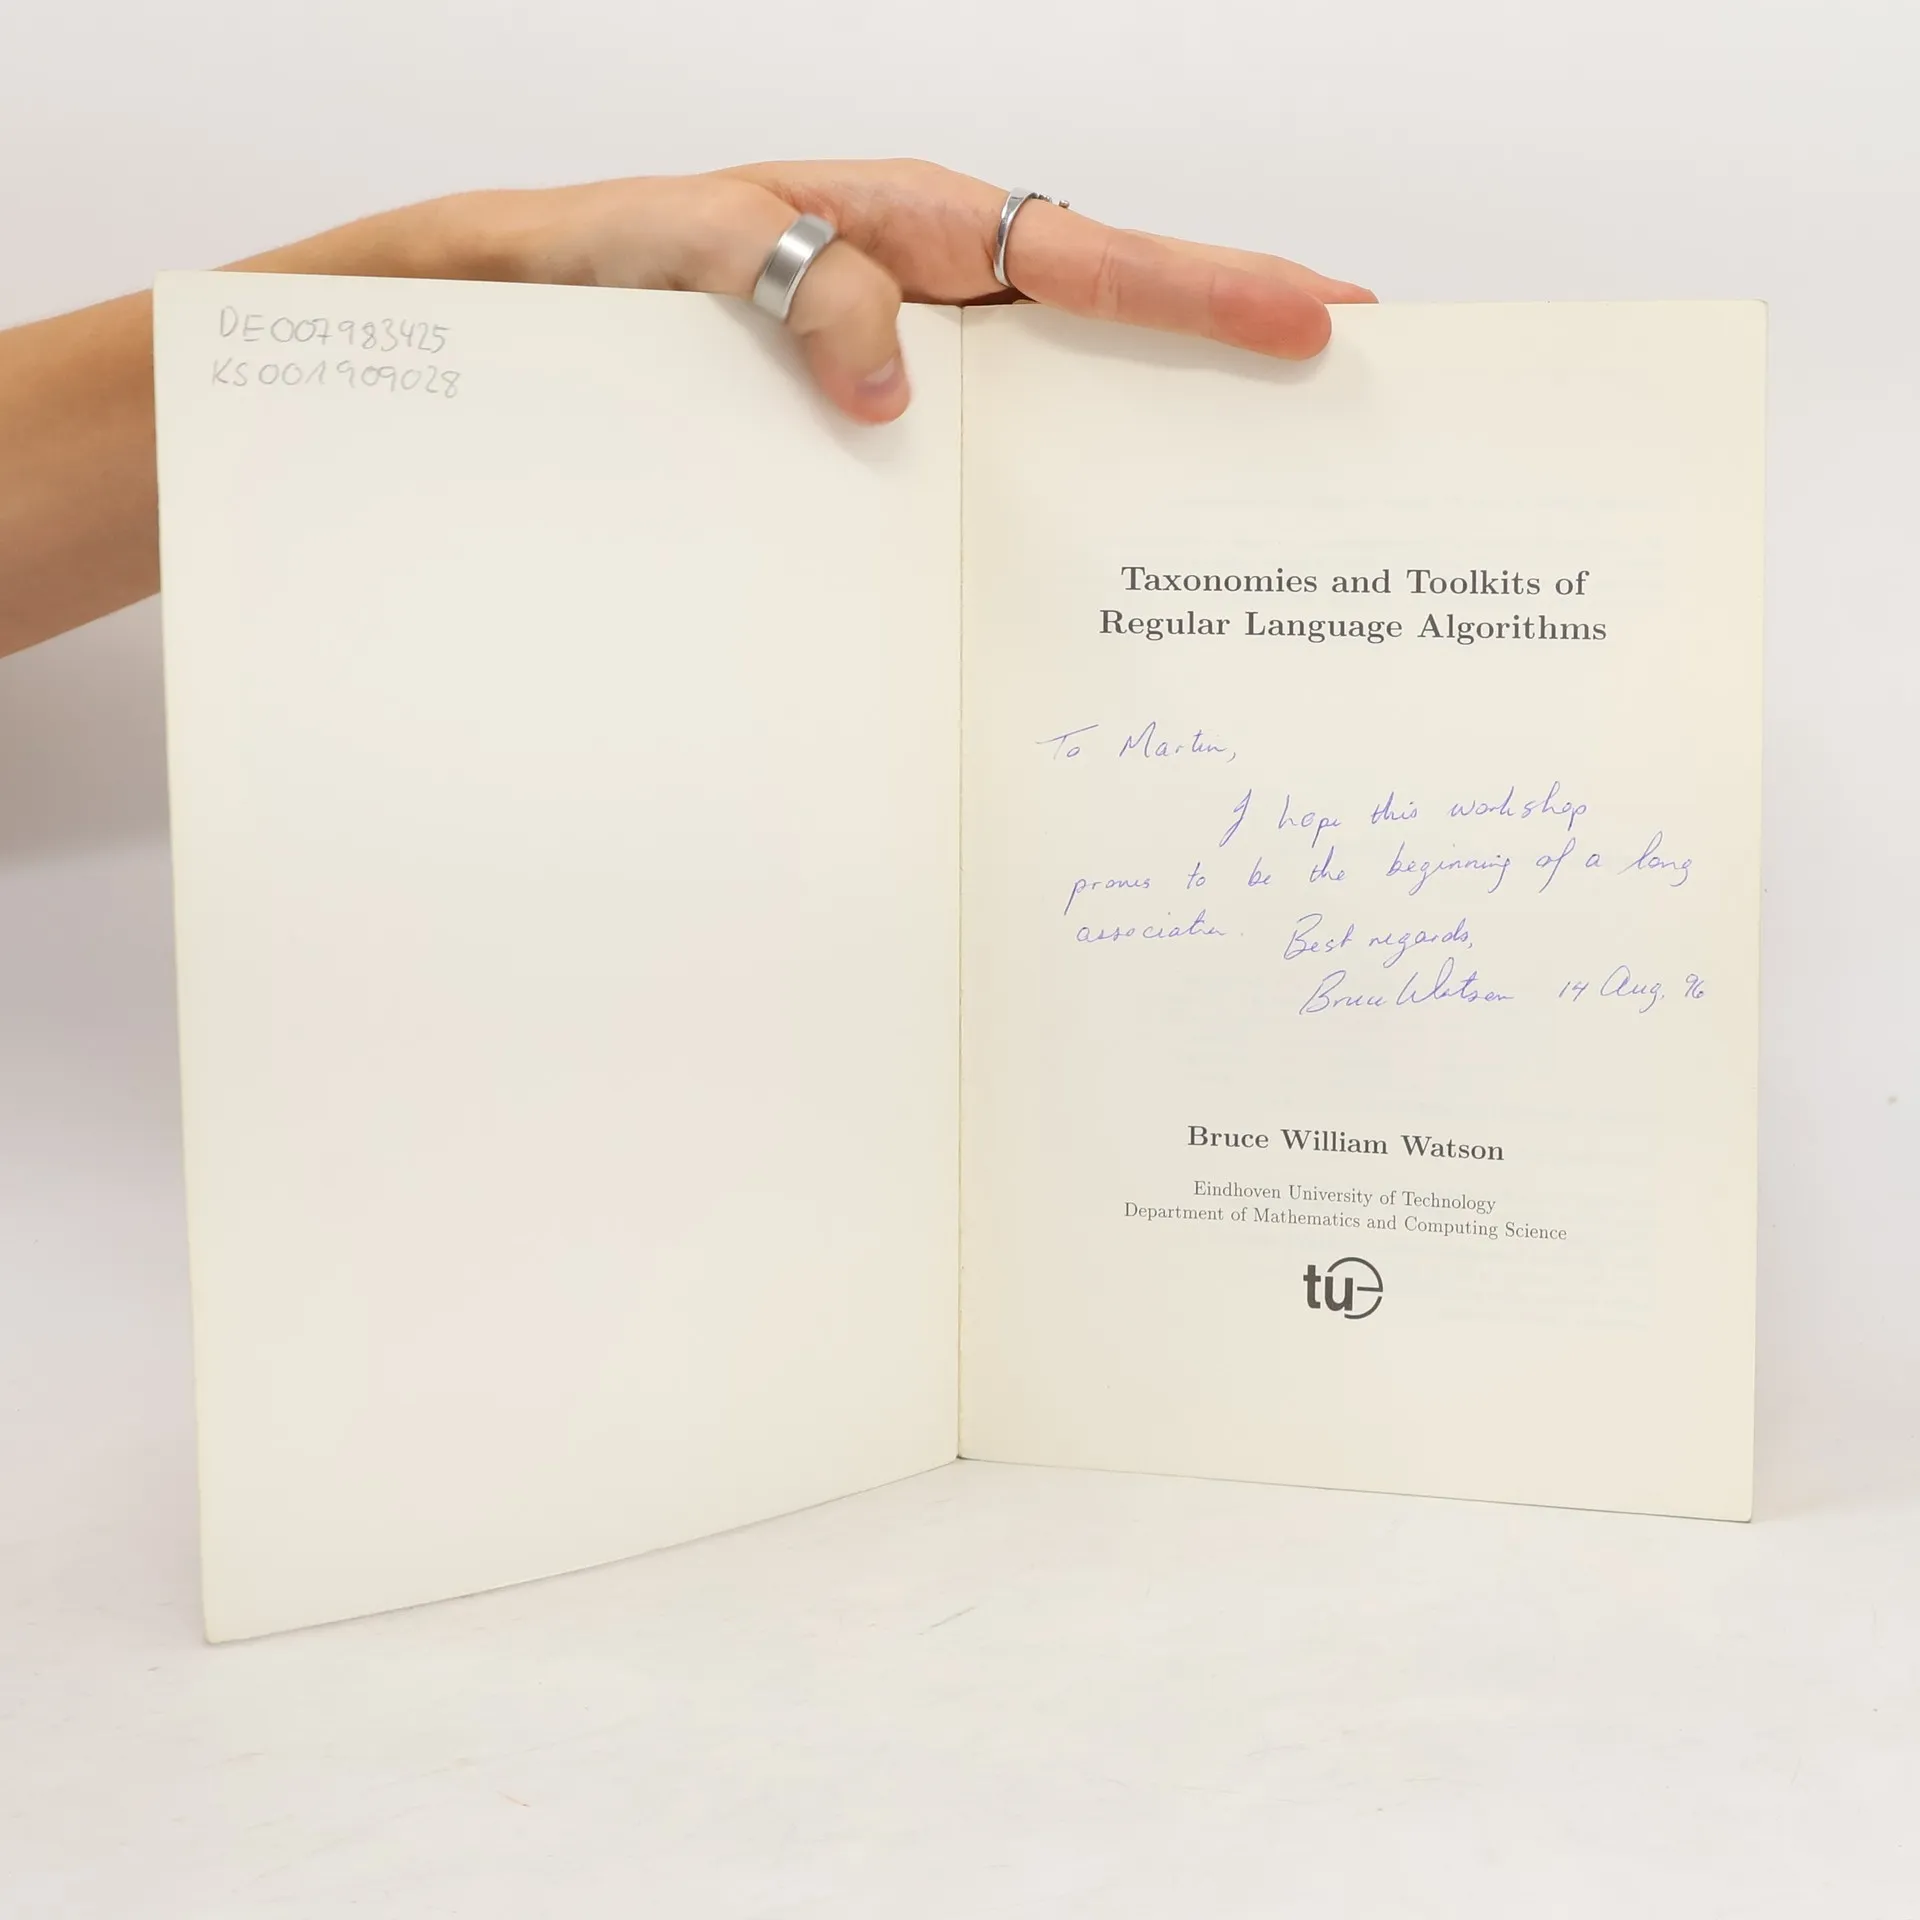 DE007983425
KS001909028
Taxonomies and Toolkits of
Regular Language Algorithms
To Martin,
I hope this workshop
proves to be the beginning of a long
association. Best regards,
Bruce Watson 14 Aug, 96
Bruce William Watson
Eindhoven University of Technology
Department of Mathematics and Computing Science
tue